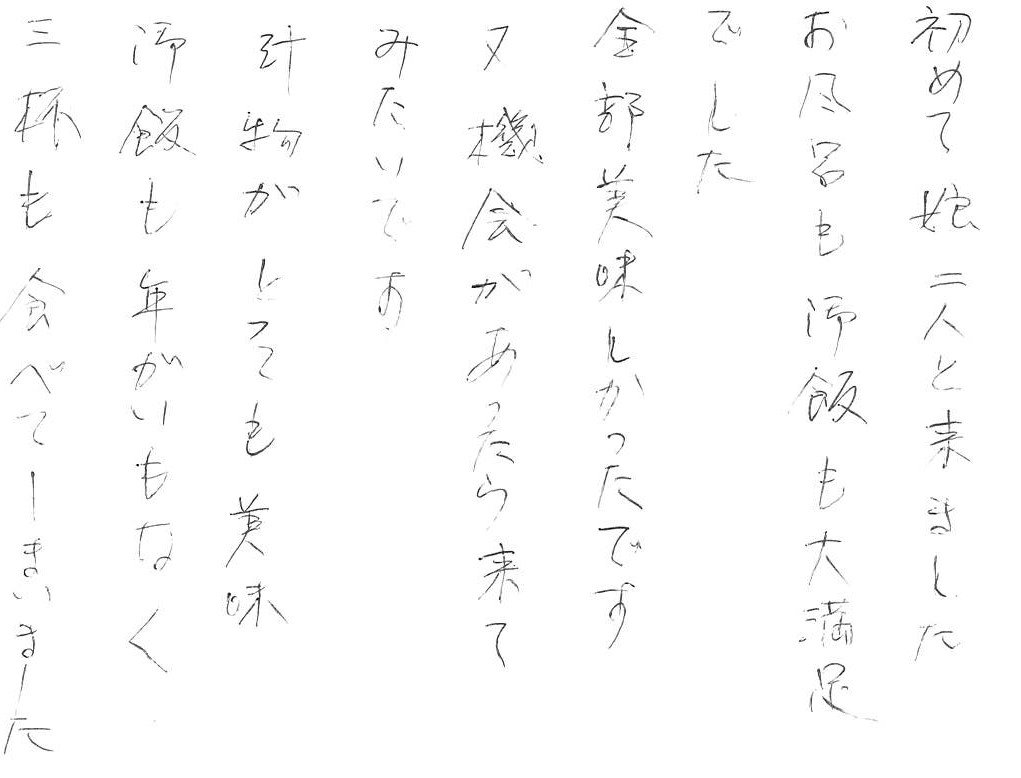 初めて娘二人と来ました
お風呂も御飯も大満足
でした
全部美味しかったです
又機会があったら来て
みたいです
汁物がとっても美味
御飯も年がいもなく
三杯も食べてしまいました